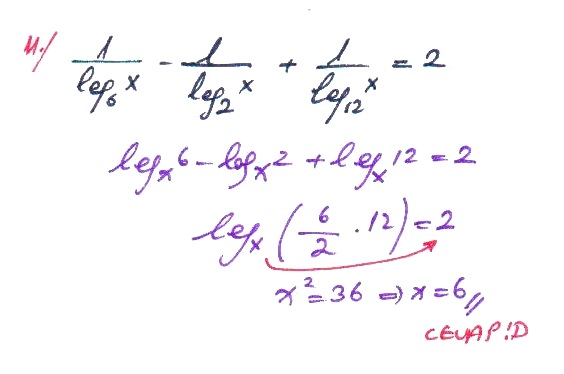 11./ 1/log₆x - 1/log₂x + 1/log₁₂x = 2
logₓ6 - logₓ2 + logₓ12 = 2
logₓ(6/2 . 12) = 2
x² = 36 ⇒ x = 6,,
CEVAP:D